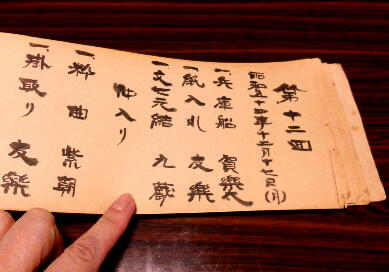 第十二回
昭和五十四年十二月十七日(月)
一、兵庫船 賀楽太
一、紙入れ 友楽
一、文七元結 九蔵
仲入り
一、粋曲 紫朝
一、掛取り 友楽